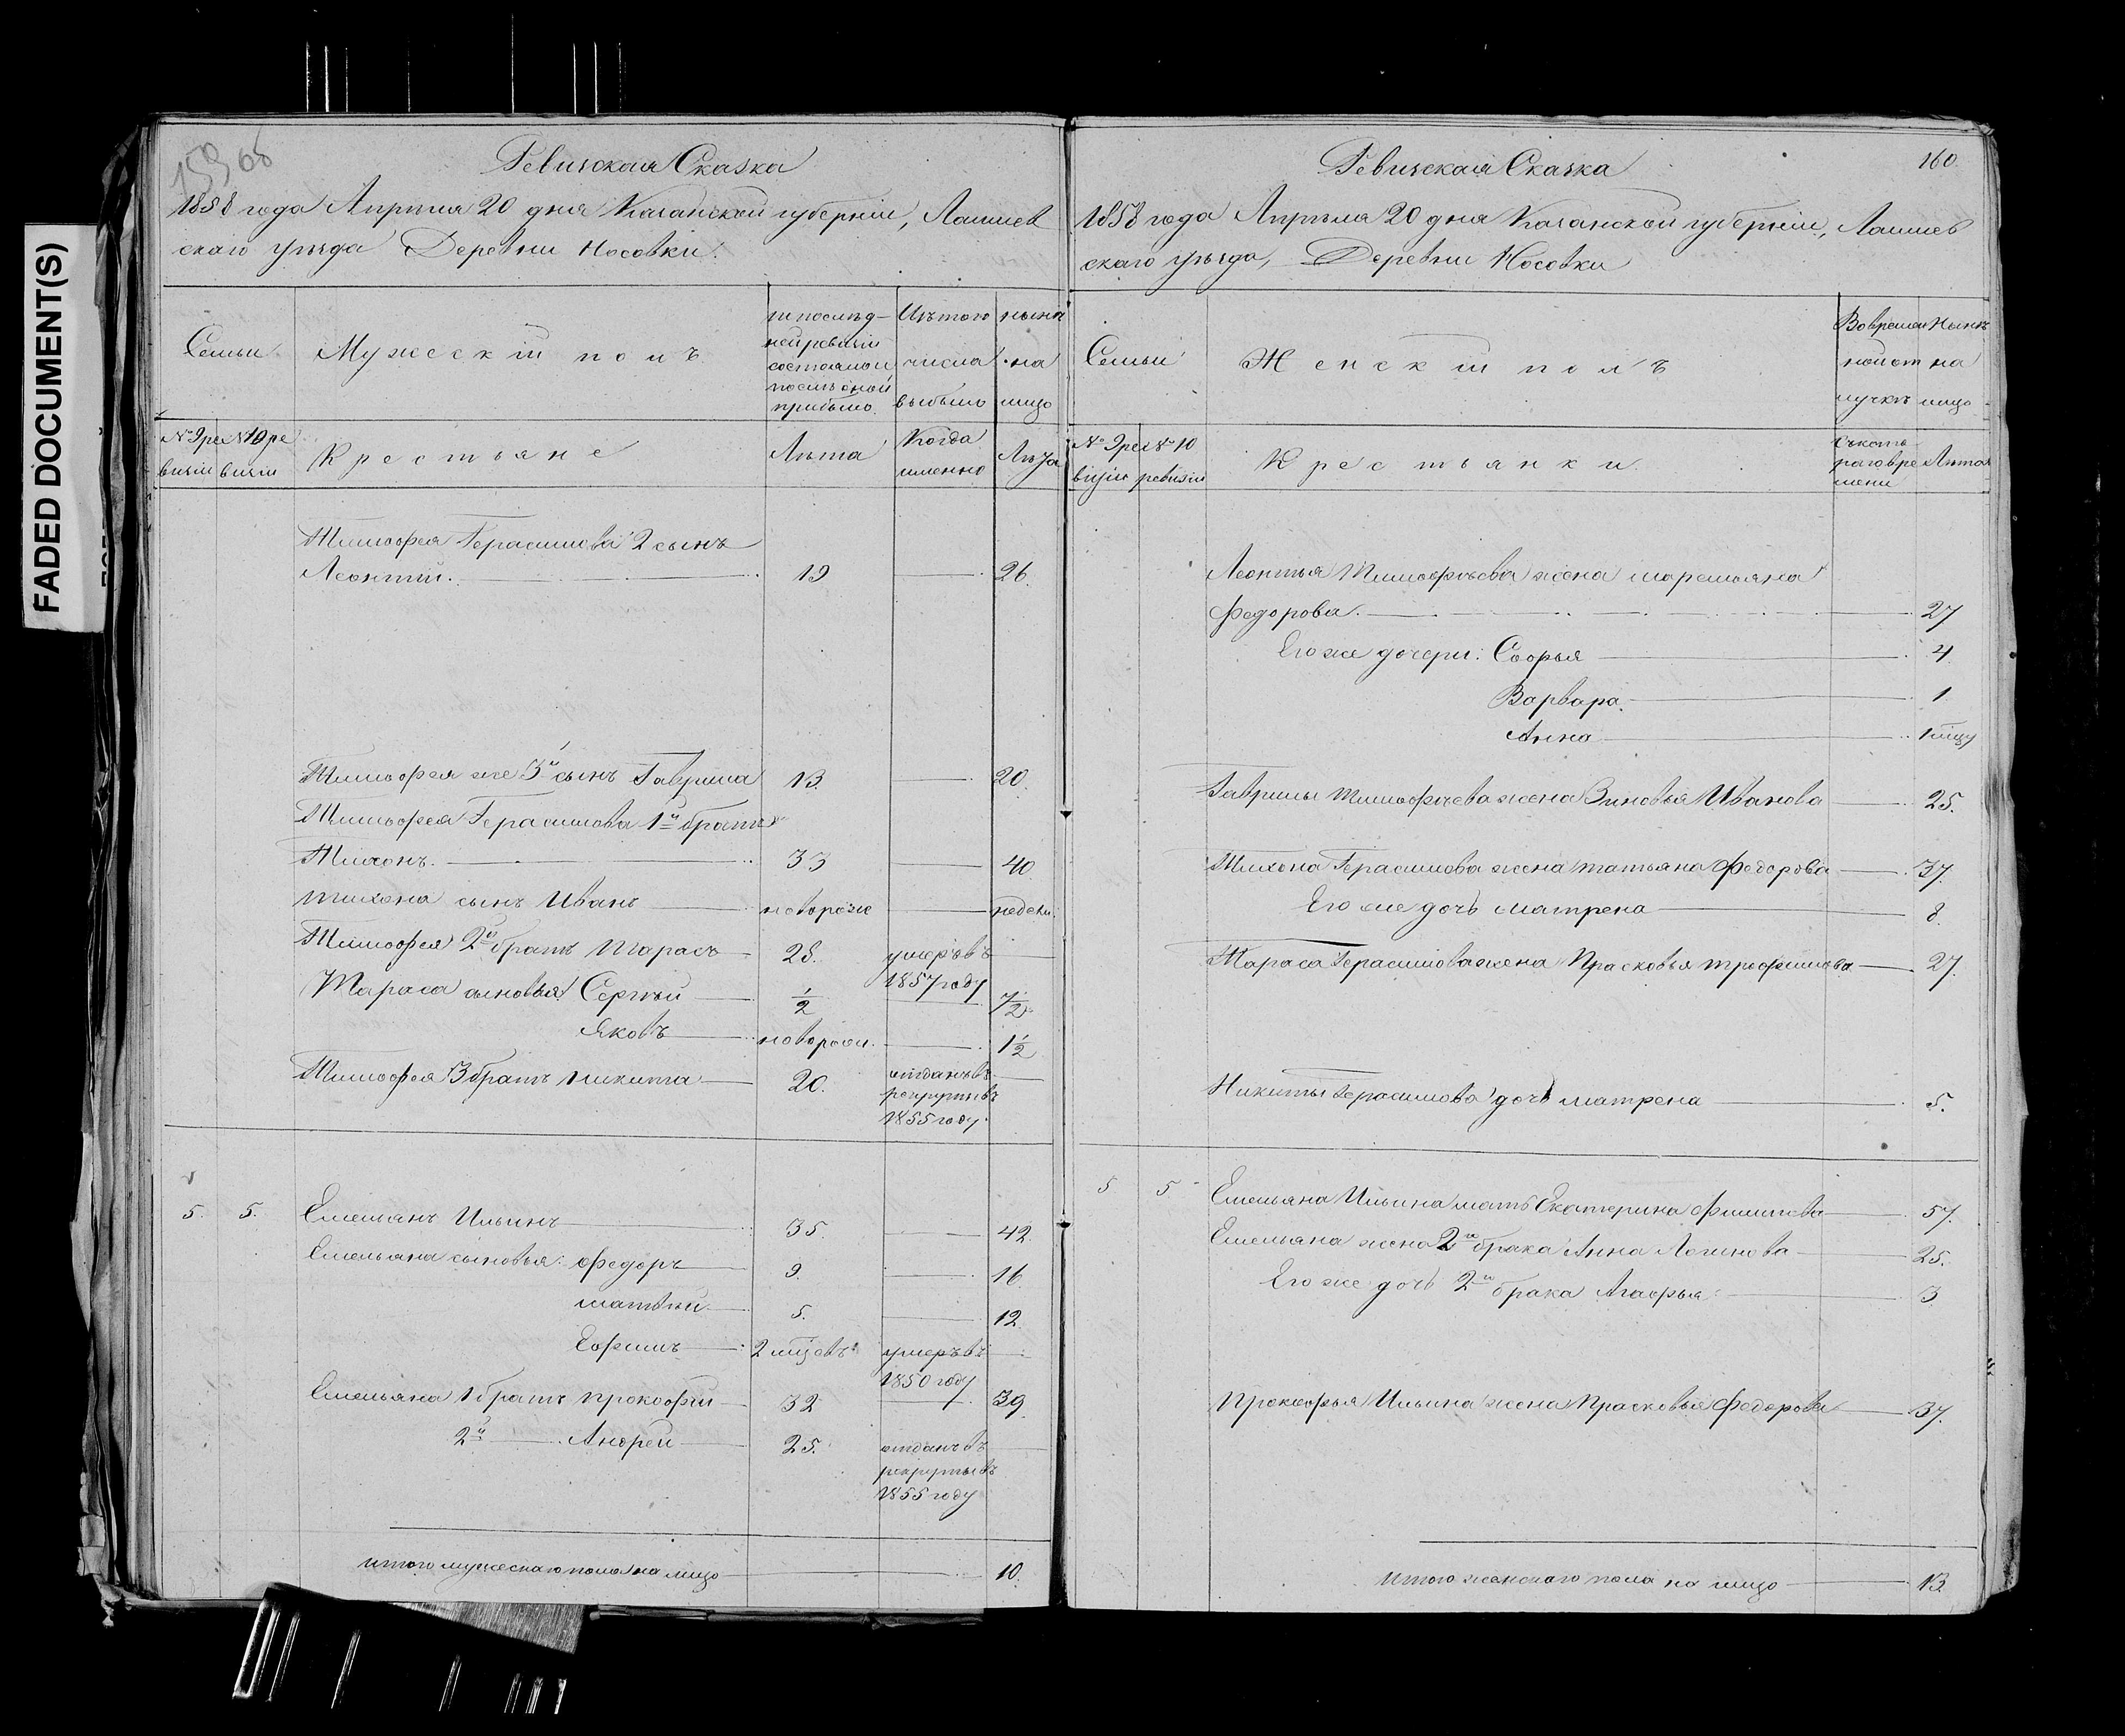 FADED DOCUMENT(S)
159 68
Ревизская Сказка
1858 года Апрѣля 20 дня Казанской губерніи, Лаишев
скаго уѣзда Деревни Носовки.
Семьи
Мужескій полъ
въ послѣд-
ней ревизіи
состояло и
послѣ оной
прибыло
Изъ того
числа
выбыло
нынѣ
на
лицо
№ 9 ре
визіи
№ 10 ре
визіи
Крестьяне
Лѣта
Когда
именно
Лѣта
Тимофея Герасимова 2 сынъ
Леонтій. 19 26.
Тимофея же 3й сынъ Гаврила 13. 20.
Тимофея Герасимова 1й братъ
Тихонъ. 33 40
Тихона сынъ Иванъ новорож недели.
Тимофея 2й братъ Тарасъ 28. умеръ въ
1857 году
Тараса сыновья Сергѣй 1/2 7 1/2
Яковъ новорож. 1 1/2
Тимофея 3 братъ Никита 20. отданъ въ
рекруты въ
1855 году.
5. 5. Емельянъ Ильинъ 35. 42
Емельяна сыновья: Федоръ 9. 16
Матвѣй 5. 12
Ефимъ 2 мѣсѣцевъ умеръ въ
1850 году
Емельяна 1 братъ Прокофій 32 39
2й Андрей 25. отданъ въ
рекруты въ
1855 году
Итого мужескаго пола на лицо 10.
Ревизская Сказка 160.
1858 года Апрѣля 20 дня Казанской губерніи, Лаишев
скаго уѣзда, Деревни Носовки
Семьи
Женскій полъ
Во времен
ной от
лучкѣ
Нынѣ
на
лицо
№ 9 ре
визіи
№ 10
ревизіи
Крестьянки.
Съ кото
раго вре
мени
Лѣта
Леонтья Тимофѣева жена Маремьяна
Федорова. 27
Его же дочери: Софья 4
Варвара 1
Анна 1 мѣсц
Гаврилы Тимофѣева жена Зиновья Иванова 25.
Тихона Герасимова жена Татьяна Федорова 37.
Его же дочь Матрена 8.
Тараса Герасимова жена Прасковья Трофимова 27.
Никиты Герасимова дочь Матрена 5.
5 5 Емельяна Ильина мать Екатерина Филипова 57.
Емельяна жена 2го брака Анна Логинова 25.
Его же дочь 2го брака Агафья 3
Прокофья Ильина жена Прасковья Федорова 37.
Итого женского пола на лицо 13.